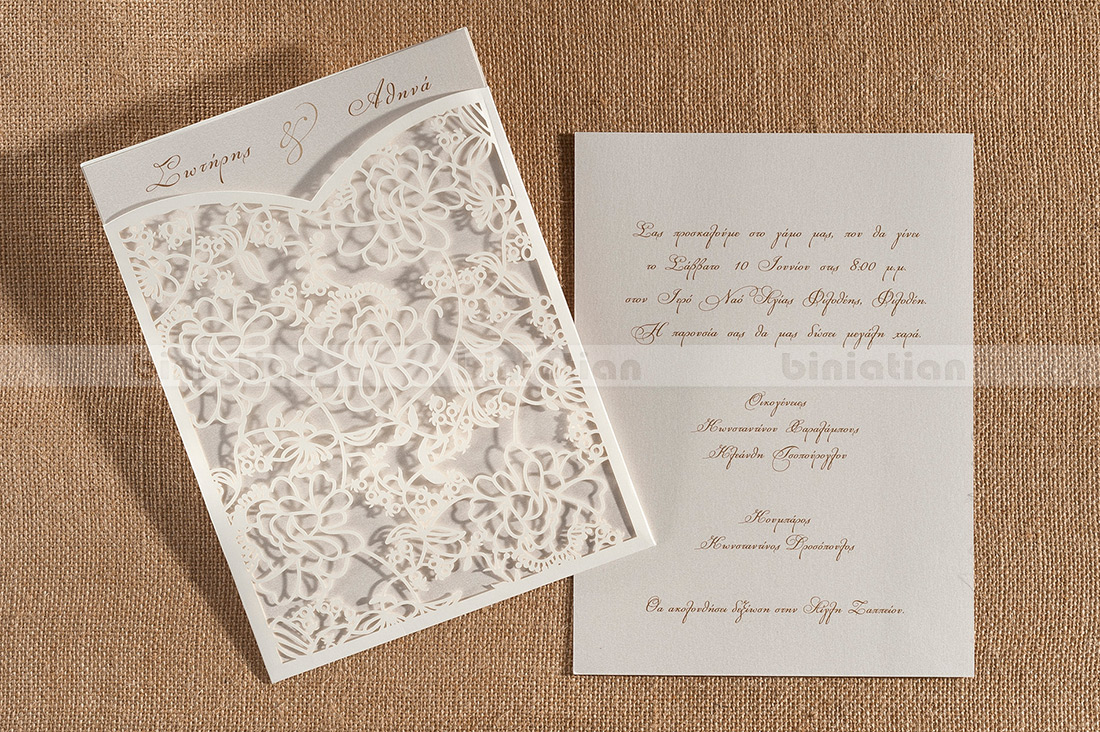 Σωτήρης & Αθηνά
Σας προσκαλούμε στο γάμο μας, που θα γίνει
το Σάββατο 10 Ιουνίου στις 8:00 μ.μ.
στον Ιερό Ναό Αγίας Φιλοθέης, Φιλοθέη.
Η παρουσία σας θα μας δώσει μεγάλη χαρά.
biniatian biniatian
Οικογένειες
Κωνσταντίνου Χαραλάμπους
Κλεάνθη Τσοπούρογλου
Κουμπάρος
Κωνσταντίνος Δροσόπουλος
Θα ακολουθήσει δεξίωση στην Αίγλη Ζαππείου.